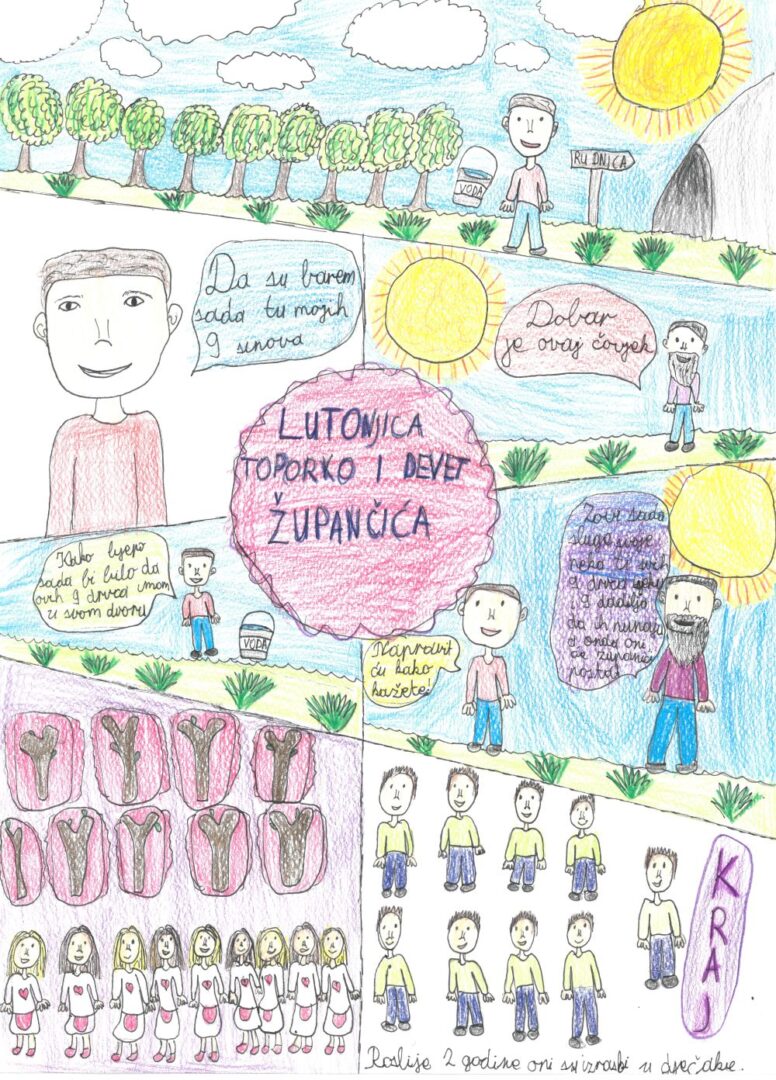 VODA
RUDNICA
Da su barem
sada tu mojih
9 sinova
Dobar
je ovaj čovjek
LUTONJICA
TOPORKO I DEVET
ŽUPANČIĆA
Kako lijepo
sada bi bilo da
ovih 9 drva imam
u svom dvoru
VODA
Napravit
ću kako
kažete.
Zovi sada
sluge svoje
neka ti svih
9 drva sjeku
i 9 dadilja
da ih nunaju
onda oni
će
postati
Poslije 2 godine oni su izrasli u dječake.
KRAJ